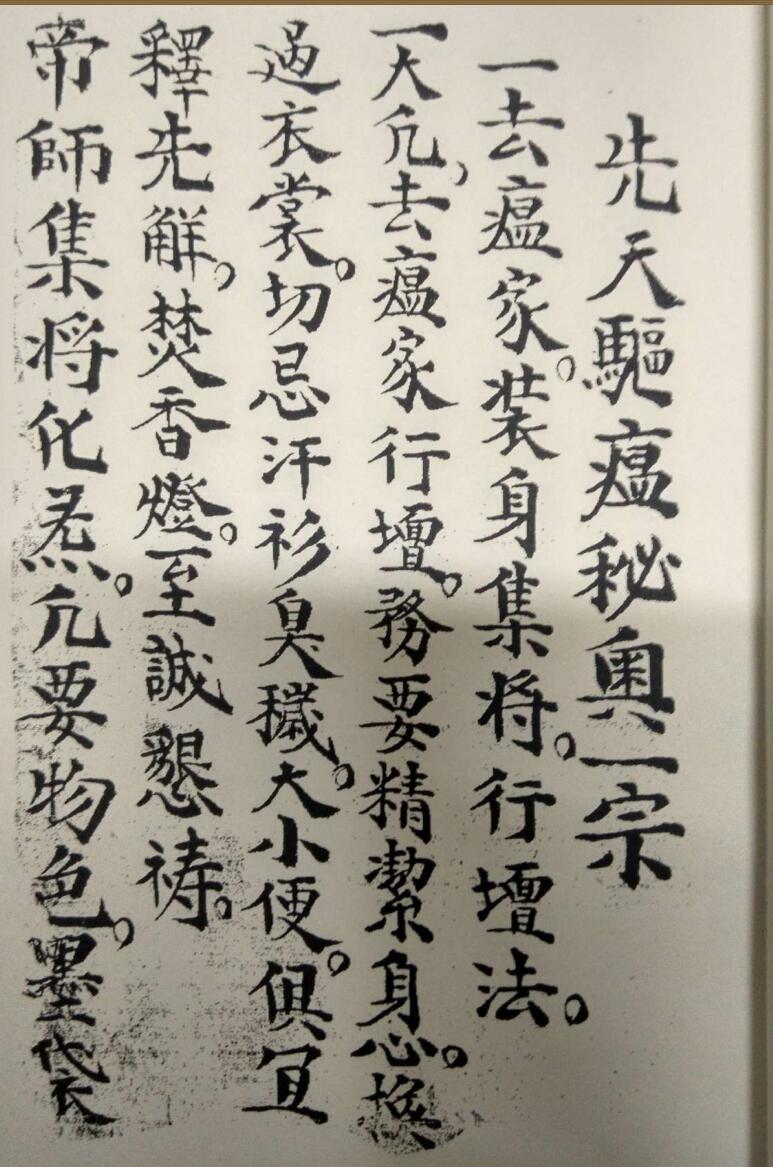 先天驅瘟秘奧一宗
一去瘟家。裝身集将。行壇法。
一大凢，去瘟家行壇。務要精潔身心。换
過衣裳。切忌汗衫臭穢。大小便。俱宜
釋先解。焚香燈。至誠懇祷。
帝師集将化炁。凢要物色。墨袋